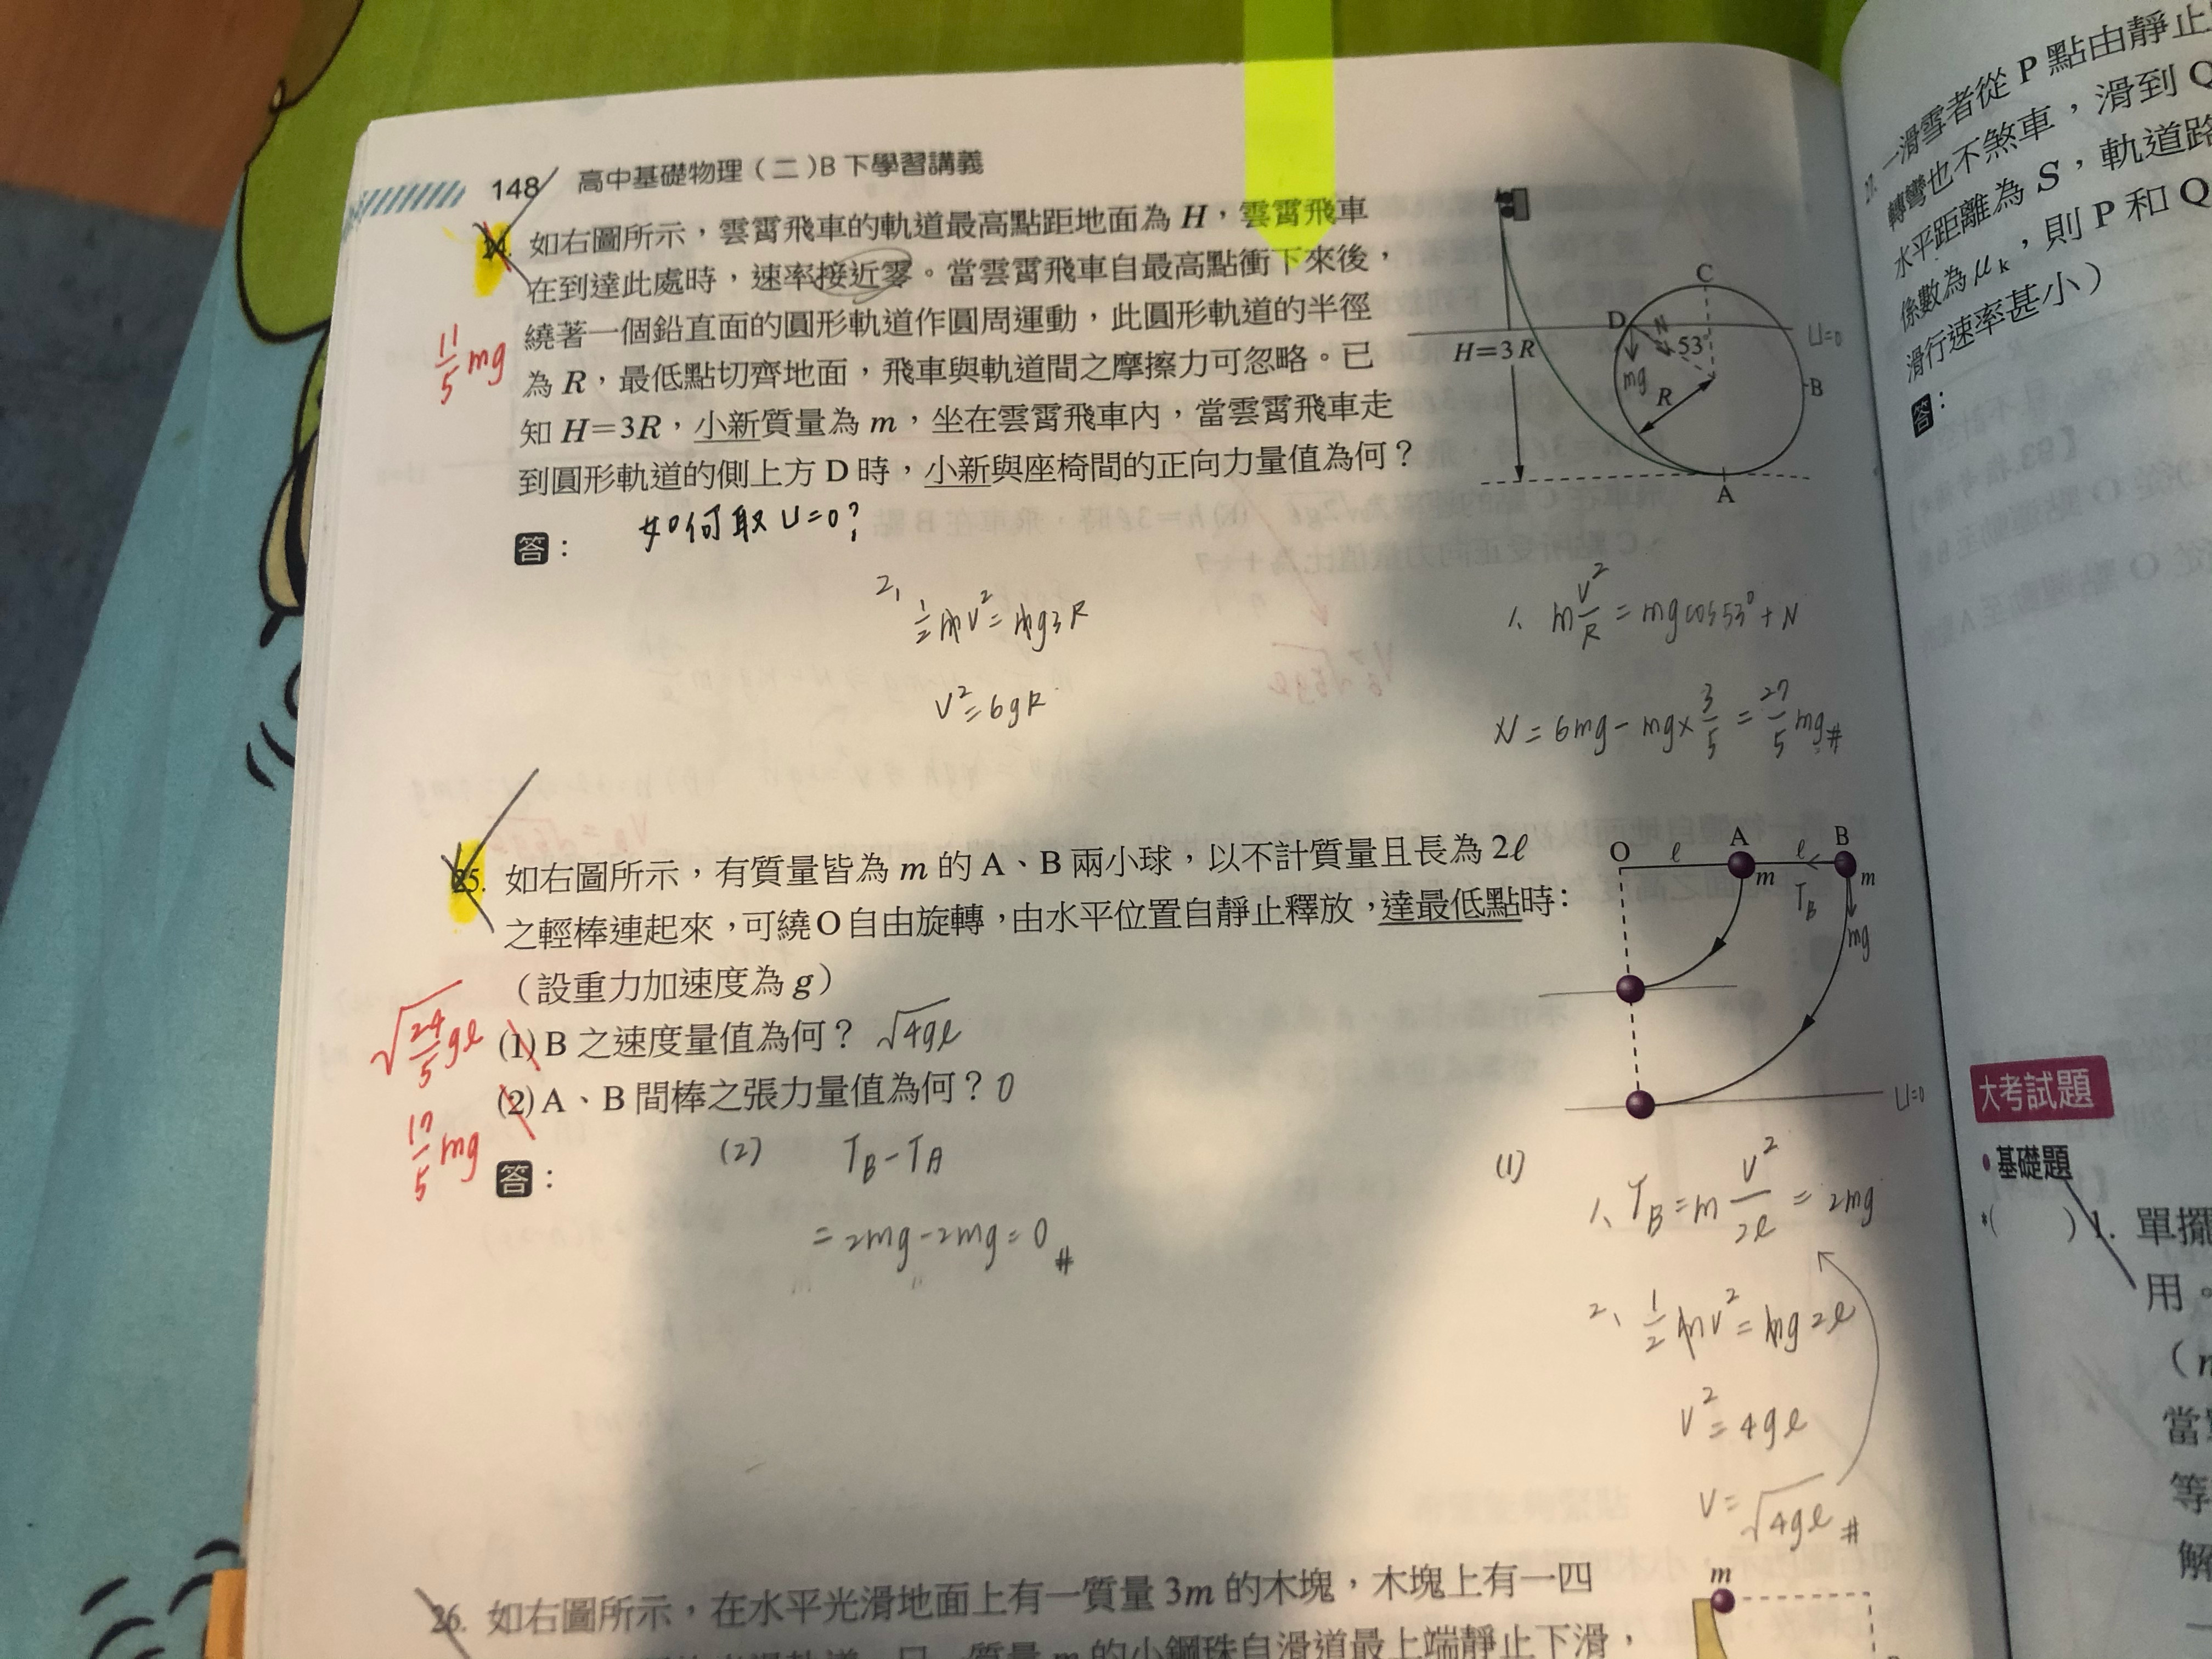 148 高中基礎物理(二)B下學習講義
24. 如右圖所示，雲霄飛車的軌道最高點距地面為 H，雲霄飛車
在到達此處時，速率接近零。當雲霄飛車自最高點衝下來後，
繞著一個鉛直面的圓形軌道作圓周運動，此圓形軌道的半徑
為 R，最低點切齊地面，飛車與軌道間之摩擦力可忽略。已
知 H=3R，小新質量為 m，坐在雲霄飛車內，當雲霄飛車走
到圓形軌道的側上方 D 時，小新與座椅間的正向力量值為何？
11/5 mg
答：
如何取 U=0？
C
D
N
53°
mg
R
B
A
H=3R
U=0
2、
½mv²=mg3R
v²=6gR
1、 m v²/R = mgcos53°+N
N = 6mg - mg×3/5 = 27/5 mg #
25. 如右圖所示，有質量皆為 m 的 A、B 兩小球，以不計質量且長為 2ℓ
之輕棒連起來，可繞O自由旋轉，由水平位置自靜止釋放，達最低點時：
（設重力加速度為 g）
(1) B 之速度量值為何？ √4gℓ
(2) A、B 間棒之張力量值為何？ 0
√24/5 gℓ
17/5 mg
答：
O ℓ A ℓ B
m
T_B
m
mg
U=0
(2) T_B-T_A
= 2mg-2mg=0 #
(1)
1、 T_B=m v²/2ℓ = 2mg
2、 ½mv²=mg2ℓ
v²=4gℓ
v=√4gℓ #
26. 如右圖所示，在水平光滑地面上有一質量 3m 的木塊，木塊上有一四
質量 m 的小鋼珠自滑道最上端靜止下滑，
m
一滑雪者從 P 點由靜止
轉彎也不煞車，滑到 Q
水平距離為 S，軌道路
係數為 μk，則 P 和 Q
滑行速率甚小）
答：
大考試題
•基礎題
*( ) 1. 單擺
用。
當
等
解